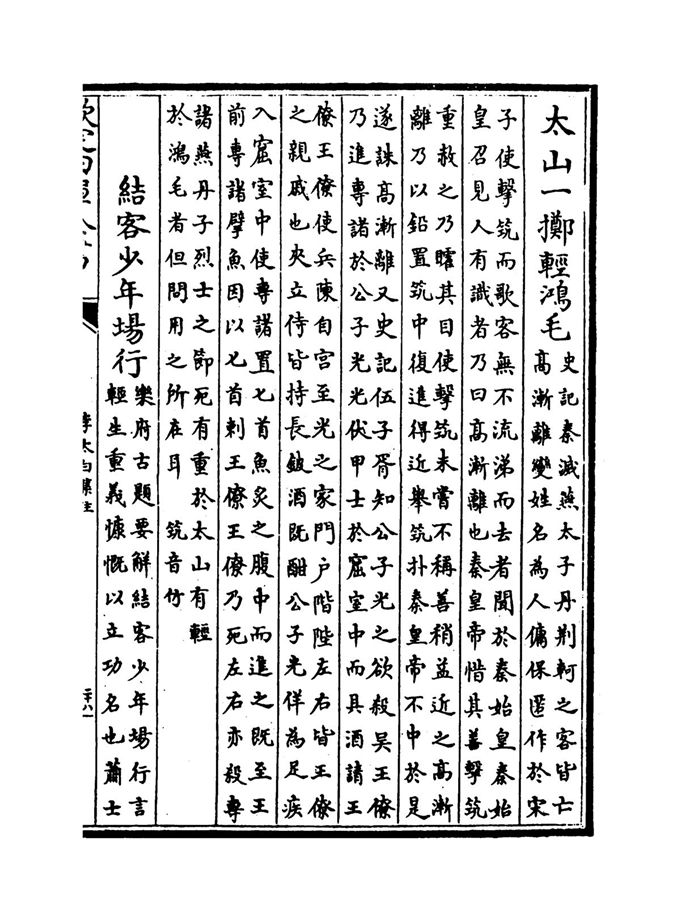 太山一擲輕鴻毛
史記秦滅燕太子丹荆軻之客皆亡
高漸離變姓名為人傭保匿作於宋
子使擊筑而歌客無不流涕而去者聞於秦始皇秦始
皇召見人有識者乃曰高漸離也秦皇帝惜其善擊筑
重赦之乃矐其目使擊筑未嘗不稱善稍益近之高漸
離乃以鉛置筑中復進得近舉筑扑秦皇帝不中於是
遂誅高漸離又史記伍子胥知公子光之欲殺吴王僚
乃進專諸於公子光光伏甲士於窟室中而具酒請王
僚王僚使兵陳自宫至光之家門户階陛左右皆王僚
之親戚也夾立侍皆持長鈹酒既酣公子光佯為足疾
入窟室中使専諸置匕首魚炙之腹中而進之既至王
前専諸擘魚因以匕首刺王僚王僚乃死左右亦殺専
諸燕丹子烈士之節死有重於太山有輕
於鴻毛者但問用之所在耳 筑音竹
結客少年場行
樂府古題要解結客少年場行言
輕生重義慷慨以立功名也蕭士
李太白集注